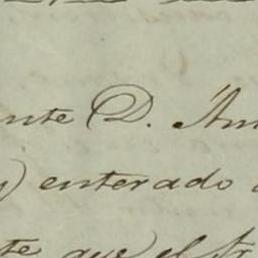 nte D. An
enterado
te que el Sr